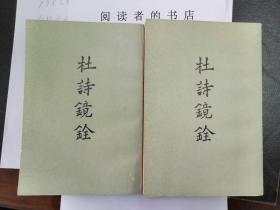 阅读者的书店
杜詩鏡銓
杜詩鏡銓